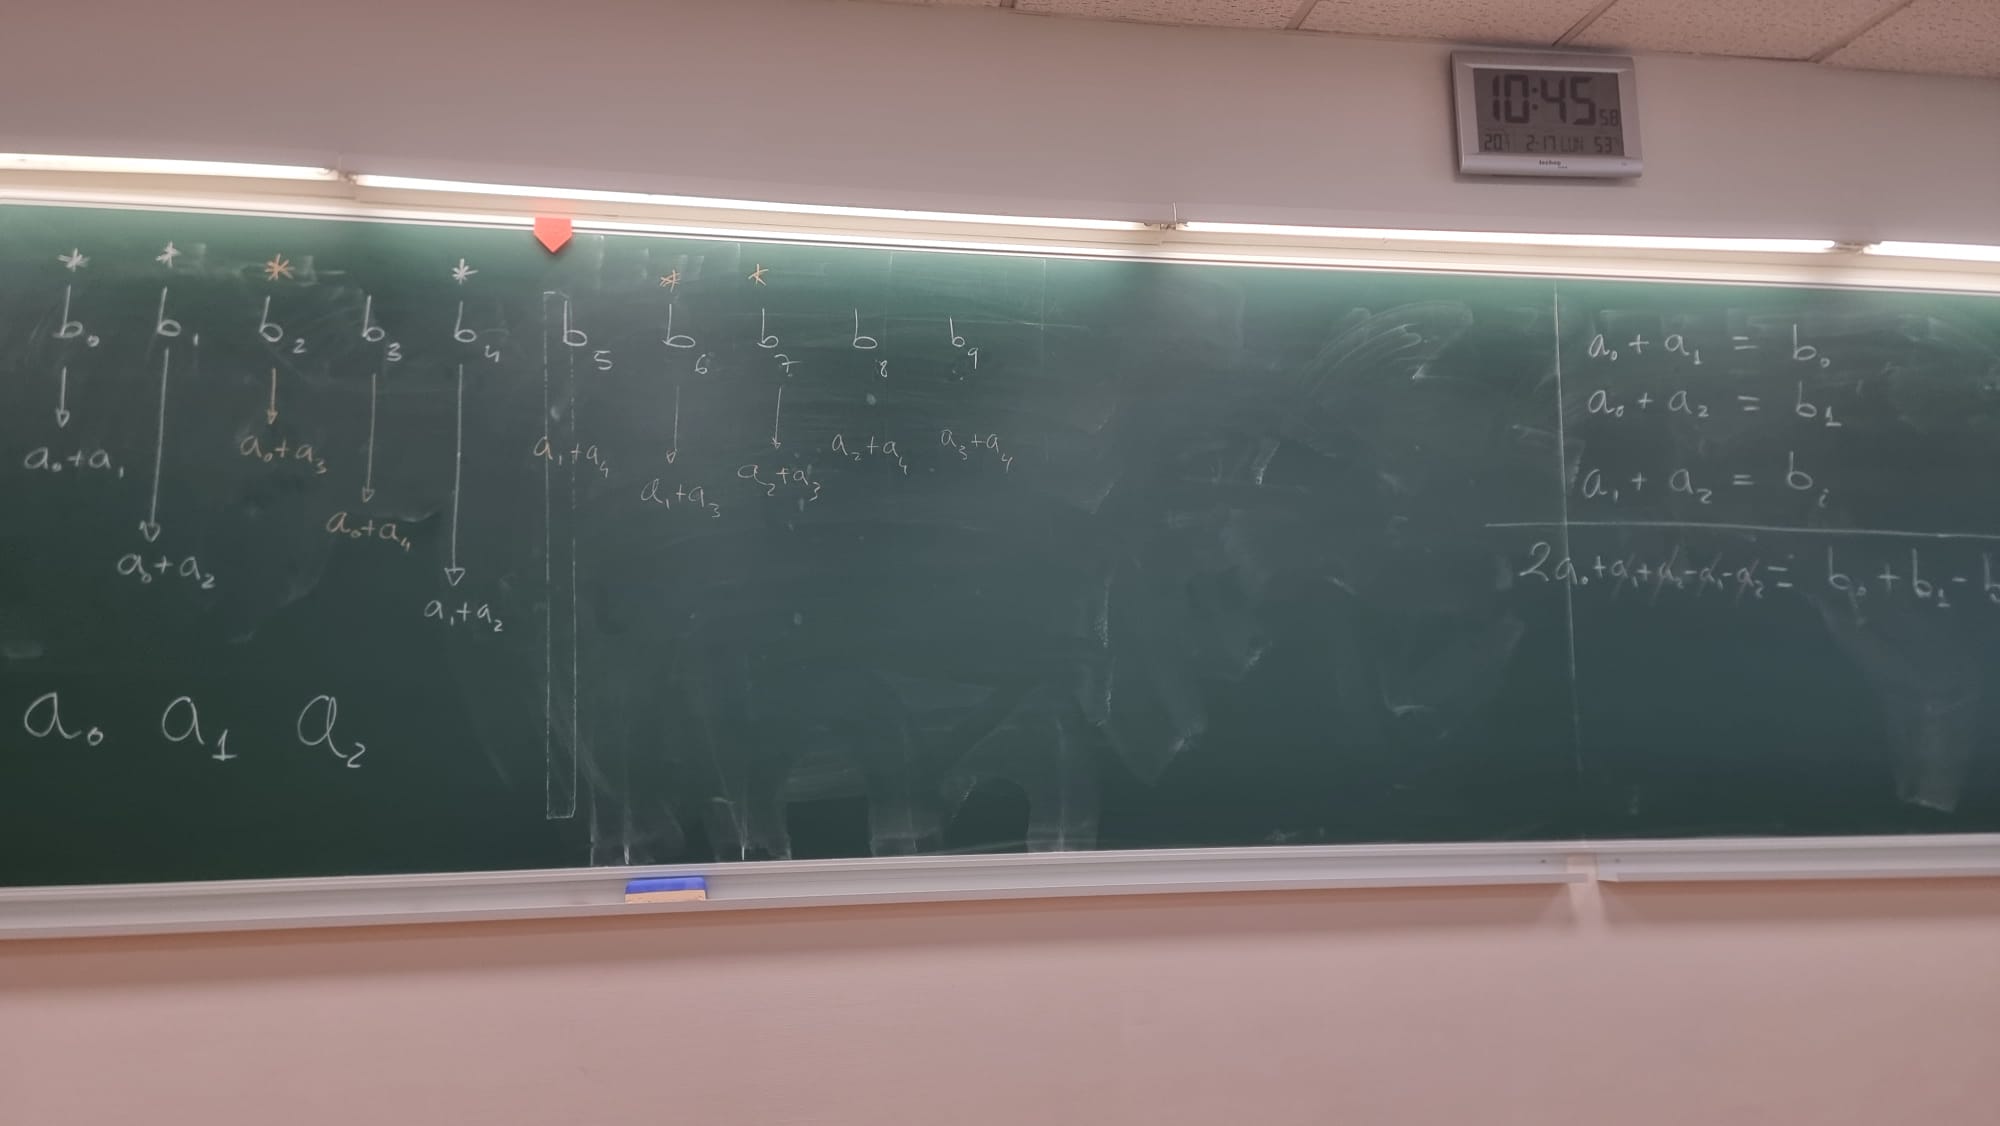 10:45 58
20 2-17 LUN 53
* * * * * *
b₀ b₁ b₂ b₃ b₄ b₅ b₆ b₇ b₈ b₉
a₀+a₁ a₀+a₂ a₀+a₃ a₀+a₄ a₁+a₂ a₁+a₄ a₁+a₃ a₂+a₃ a₂+a₄ a₃+a₄
a₀ a₁ a₂
a₀ + a₁ = b₀
a₀ + a₂ = b₁
a₁ + a₂ = bᵢ
2a₀+a₁+a₂-a₁-a₂ = b₀ + b₁ -